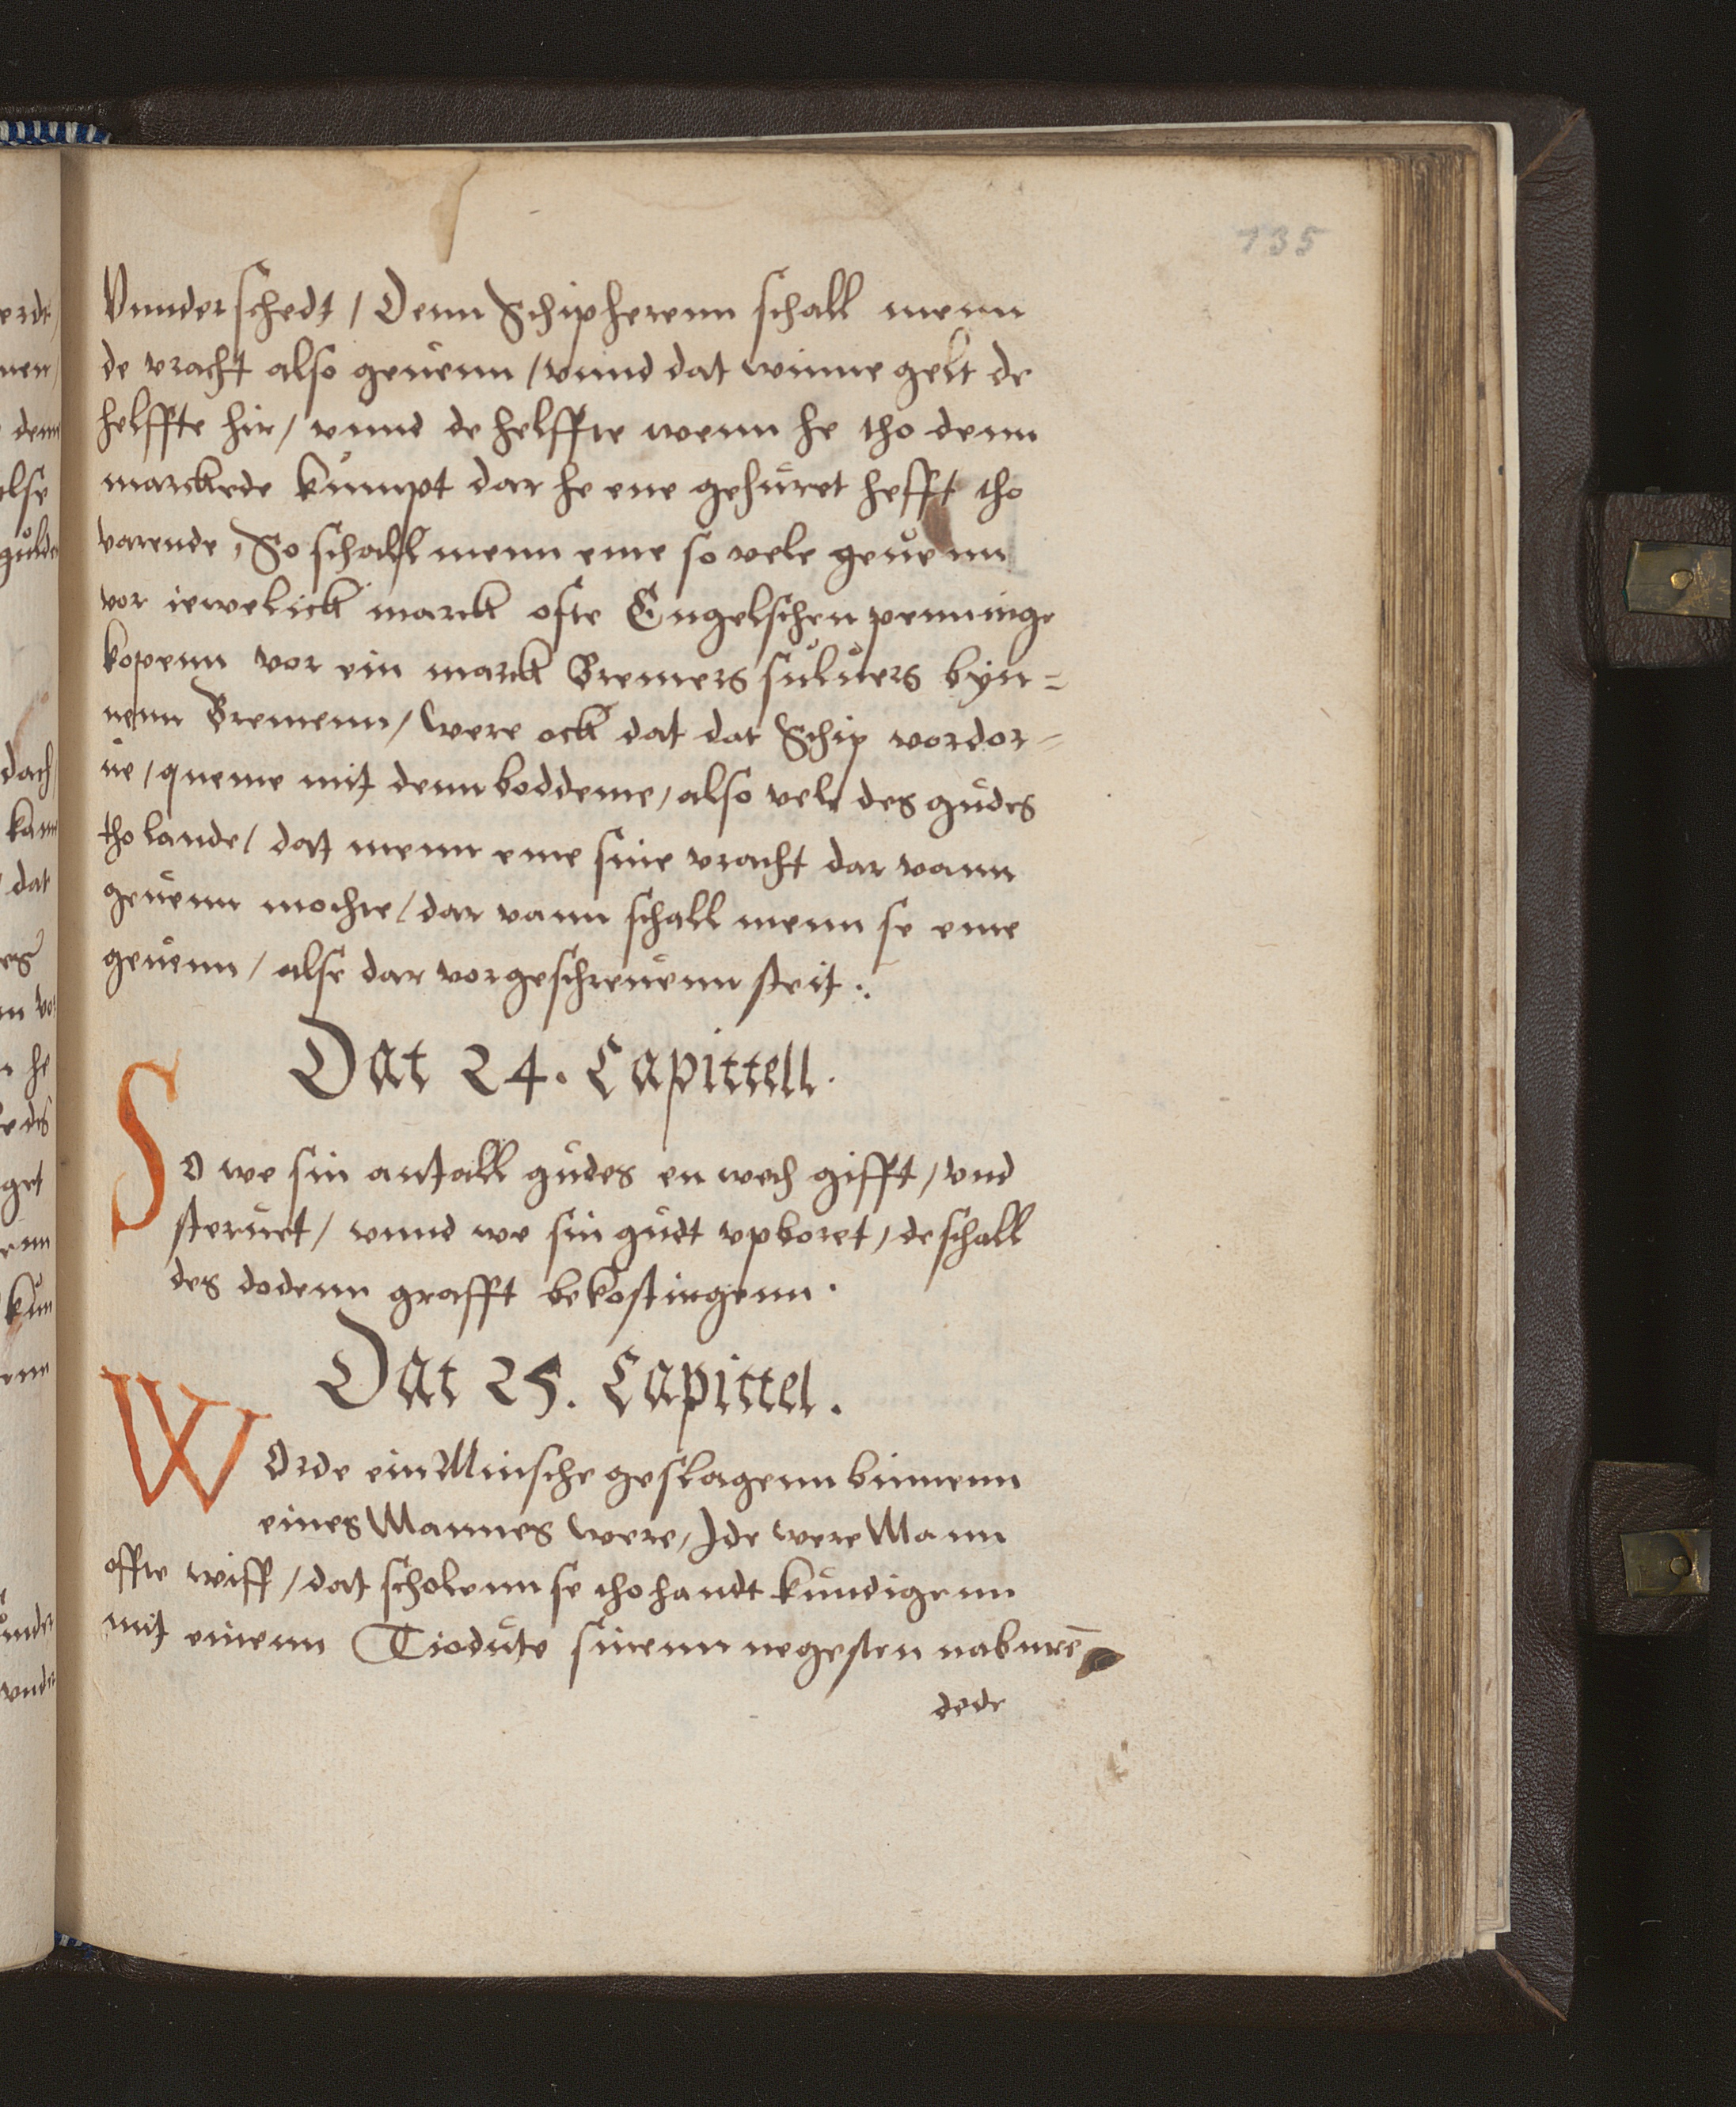 135
Vnnderschedt / Denn Schipherenn schall menn
de vracht also geuenn / vnnd dat winne gelt de
helffte hir / vnnd de helffte wenn he tho denn
marckede kumpt dar he ene gehüret hefft tho
varende, So schall menn eme so vele geuenn
vor iewelick marck ofte Engelschen penninge
kopenn vor ein marck Bremers suluers byn=
nenn Bremenn / Were ock dat dat Schip vordor=
ue / queme mit denn boddeme / also vele des gudes
tho lande / dat menn eme sine vracht dar vann
geuenn mochte / dar vann schall menn se eme
geuenn / alse dar vorgeschreuenn steit :.
Dat 24. Capittell.
SO we sin antall gudes en wech gifft / vnd
steruet / vnnd we sin gudt vpboret / de schall
des dodenn grafft bekostingenn.
Dat 25. Capittel.
WOrde ein Minsche geslagenn binnenn
eines Mannes Were, Ide were Mann
offte wiff / dat scholenn se thohandt kundigenn
mit einenn Tiodute sinenn negesten naburē
dede